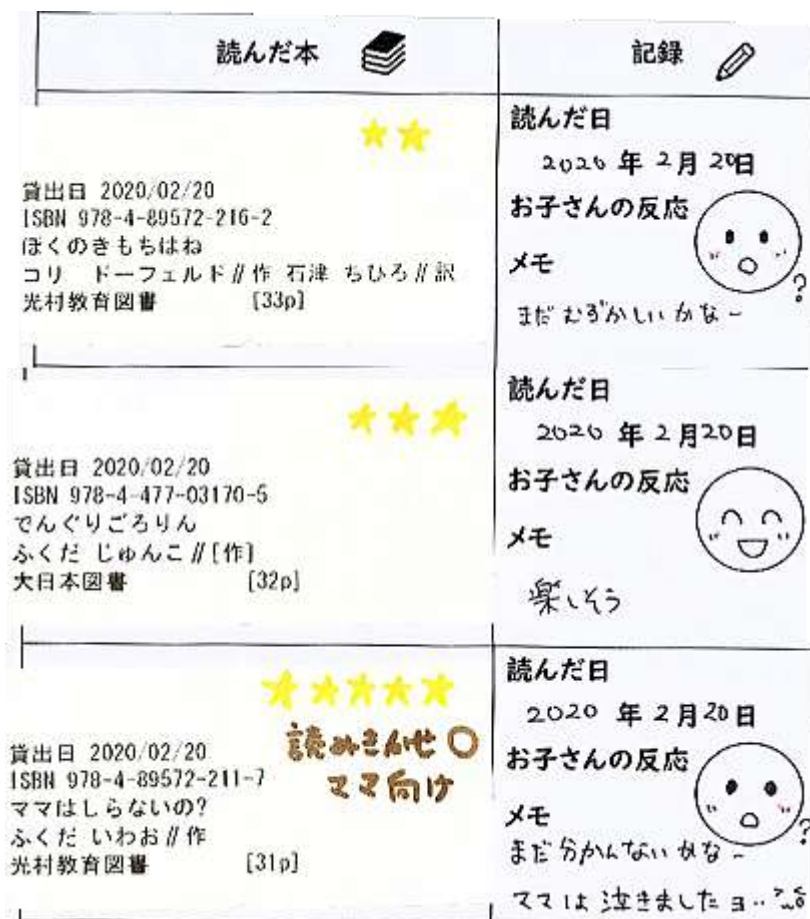 読んだ本
記録
貸出日 2020/02/20
ISBN 978-4-89572-216-2
ぼくのきもちはね
コリ ドーフェルド∥作 石津 ちひろ∥訳
光村教育図書 [33p]
読んだ日
2020年2月20日
お子さんの反応
?
メモ
まだむずかしいかなー
貸出日 2020/02/20
ISBN 978-4-477-03170-5
でんぐりごろりん
ふくだ じゅんこ∥[作]
大日本図書 [32p]
読んだ日
2020年2月20日
お子さんの反応
メモ
楽しそう
読みきかせ○
ママ向け
貸出日 2020/02/20
ISBN 978-4-89572-211-7
ママはしらないの?
ふくだ いわお∥作
光村教育図書 [31p]
読んだ日
2020年2月20日
お子さんの反応
?
メモ
まだ分かんないかなー
ママは泣きましたョ‥